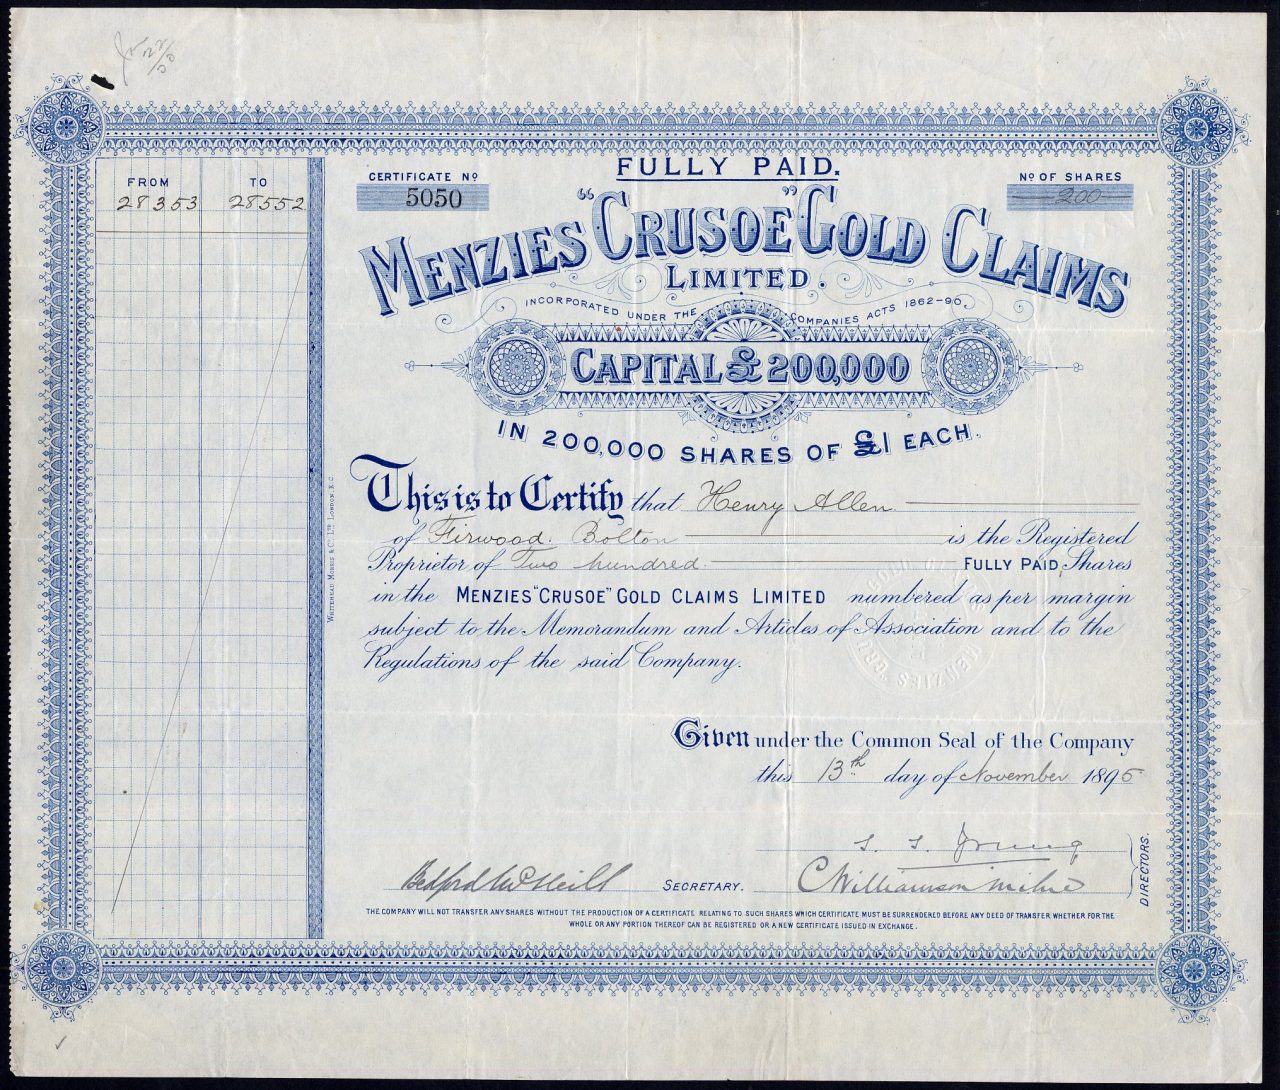 FULLY PAID.
FROM TO
28353 28552
CERTIFICATE Nº
5050
Nº OF SHARES
200
MENZIES "CRUSOE" GOLD CLAIMS
LIMITED.
INCORPORATED UNDER THE COMPANIES ACTS 1862-90.
CAPITAL £200,000
IN 200,000 SHARES OF £1 EACH.
This is to Certify that Henry Allen
of Firwood. Bolton is the Registered
Proprietor of Two hundred FULLY PAID Shares
in the MENZIES "CRUSOE" GOLD CLAIMS LIMITED numbered as per margin
subject to the Memorandum and Articles of Association and to the
Regulations of the said Company.
Given under the Common Seal of the Company
this 13th day of November 1895
Bedford McNeill SECRETARY.
C Williamson Milne
DIRECTORS.
THE COMPANY WILL NOT TRANSFER ANY SHARES WITHOUT THE PRODUCTION OF A CERTIFICATE RELATING TO SUCH SHARES WHICH CERTIFICATE MUST BE SURRENDERED BEFORE ANY DEED OF TRANSFER WHETHER FOR THE
WHOLE OR ANY PORTION THEREOF CAN BE REGISTERED OR A NEW CERTIFICATE ISSUED IN EXCHANGE.
WHITEHEAD MORRIS & CO. LTD LONDON, E.C.